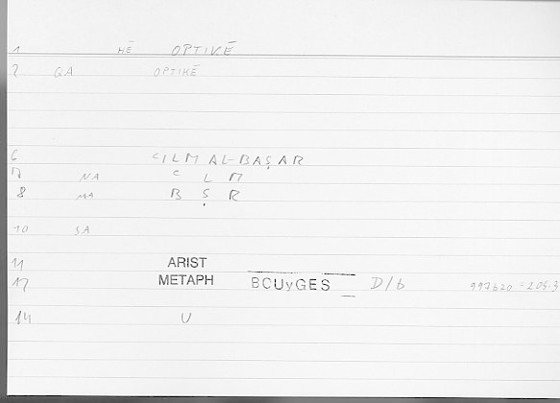 1 HĒ OPTIKĒ
2 GA OPTIKĒ
6 cILM AL-BAṢAR
7 NA c L M
8 MA B Ṣ R
10 SA
11 ARIST
12 METAPH BOUyGES D/b 997b20 = 205.3
14 U